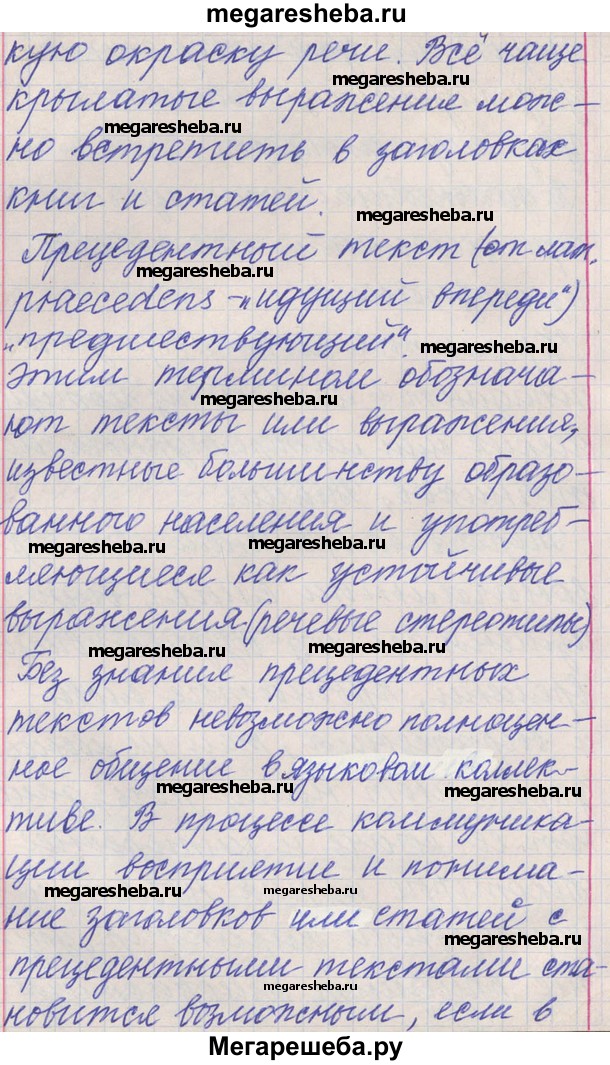 megaresheba.ru
кую окраску речи. Всё чаще
megaresheba.ru
крылатые выражения мож-
megaresheba.ru
но встретить в заголовках
книг и статей.
megaresheba.ru
Прецедентный текст (от лат.
megaresheba.ru
praecedens - „идущий впереди“)
„предшествующий“.
megaresheba.ru
Этим термином обознача-
megaresheba.ru
ют тексты или выражения,
известные большинству образо-
ванного населения и употреб-
megaresheba.ru
megaresheba.ru
ляющиеся как устойчивые
выражения (речевые стереотипы)
megaresheba.ru
megaresheba.ru
Без знание прецедентных
текстов невозможно полноцен-
ное общение в языковом коллек-
megaresheba.ru
megaresheba.ru
тиве. В процессе коммуника-
ции восприятие и понима-
megaresheba.ru
megaresheba.ru
ние заголовков или статей с
megaresheba.ru
прецедентными текстами ста-
новится возможным, если в
Мегарешеба.ру